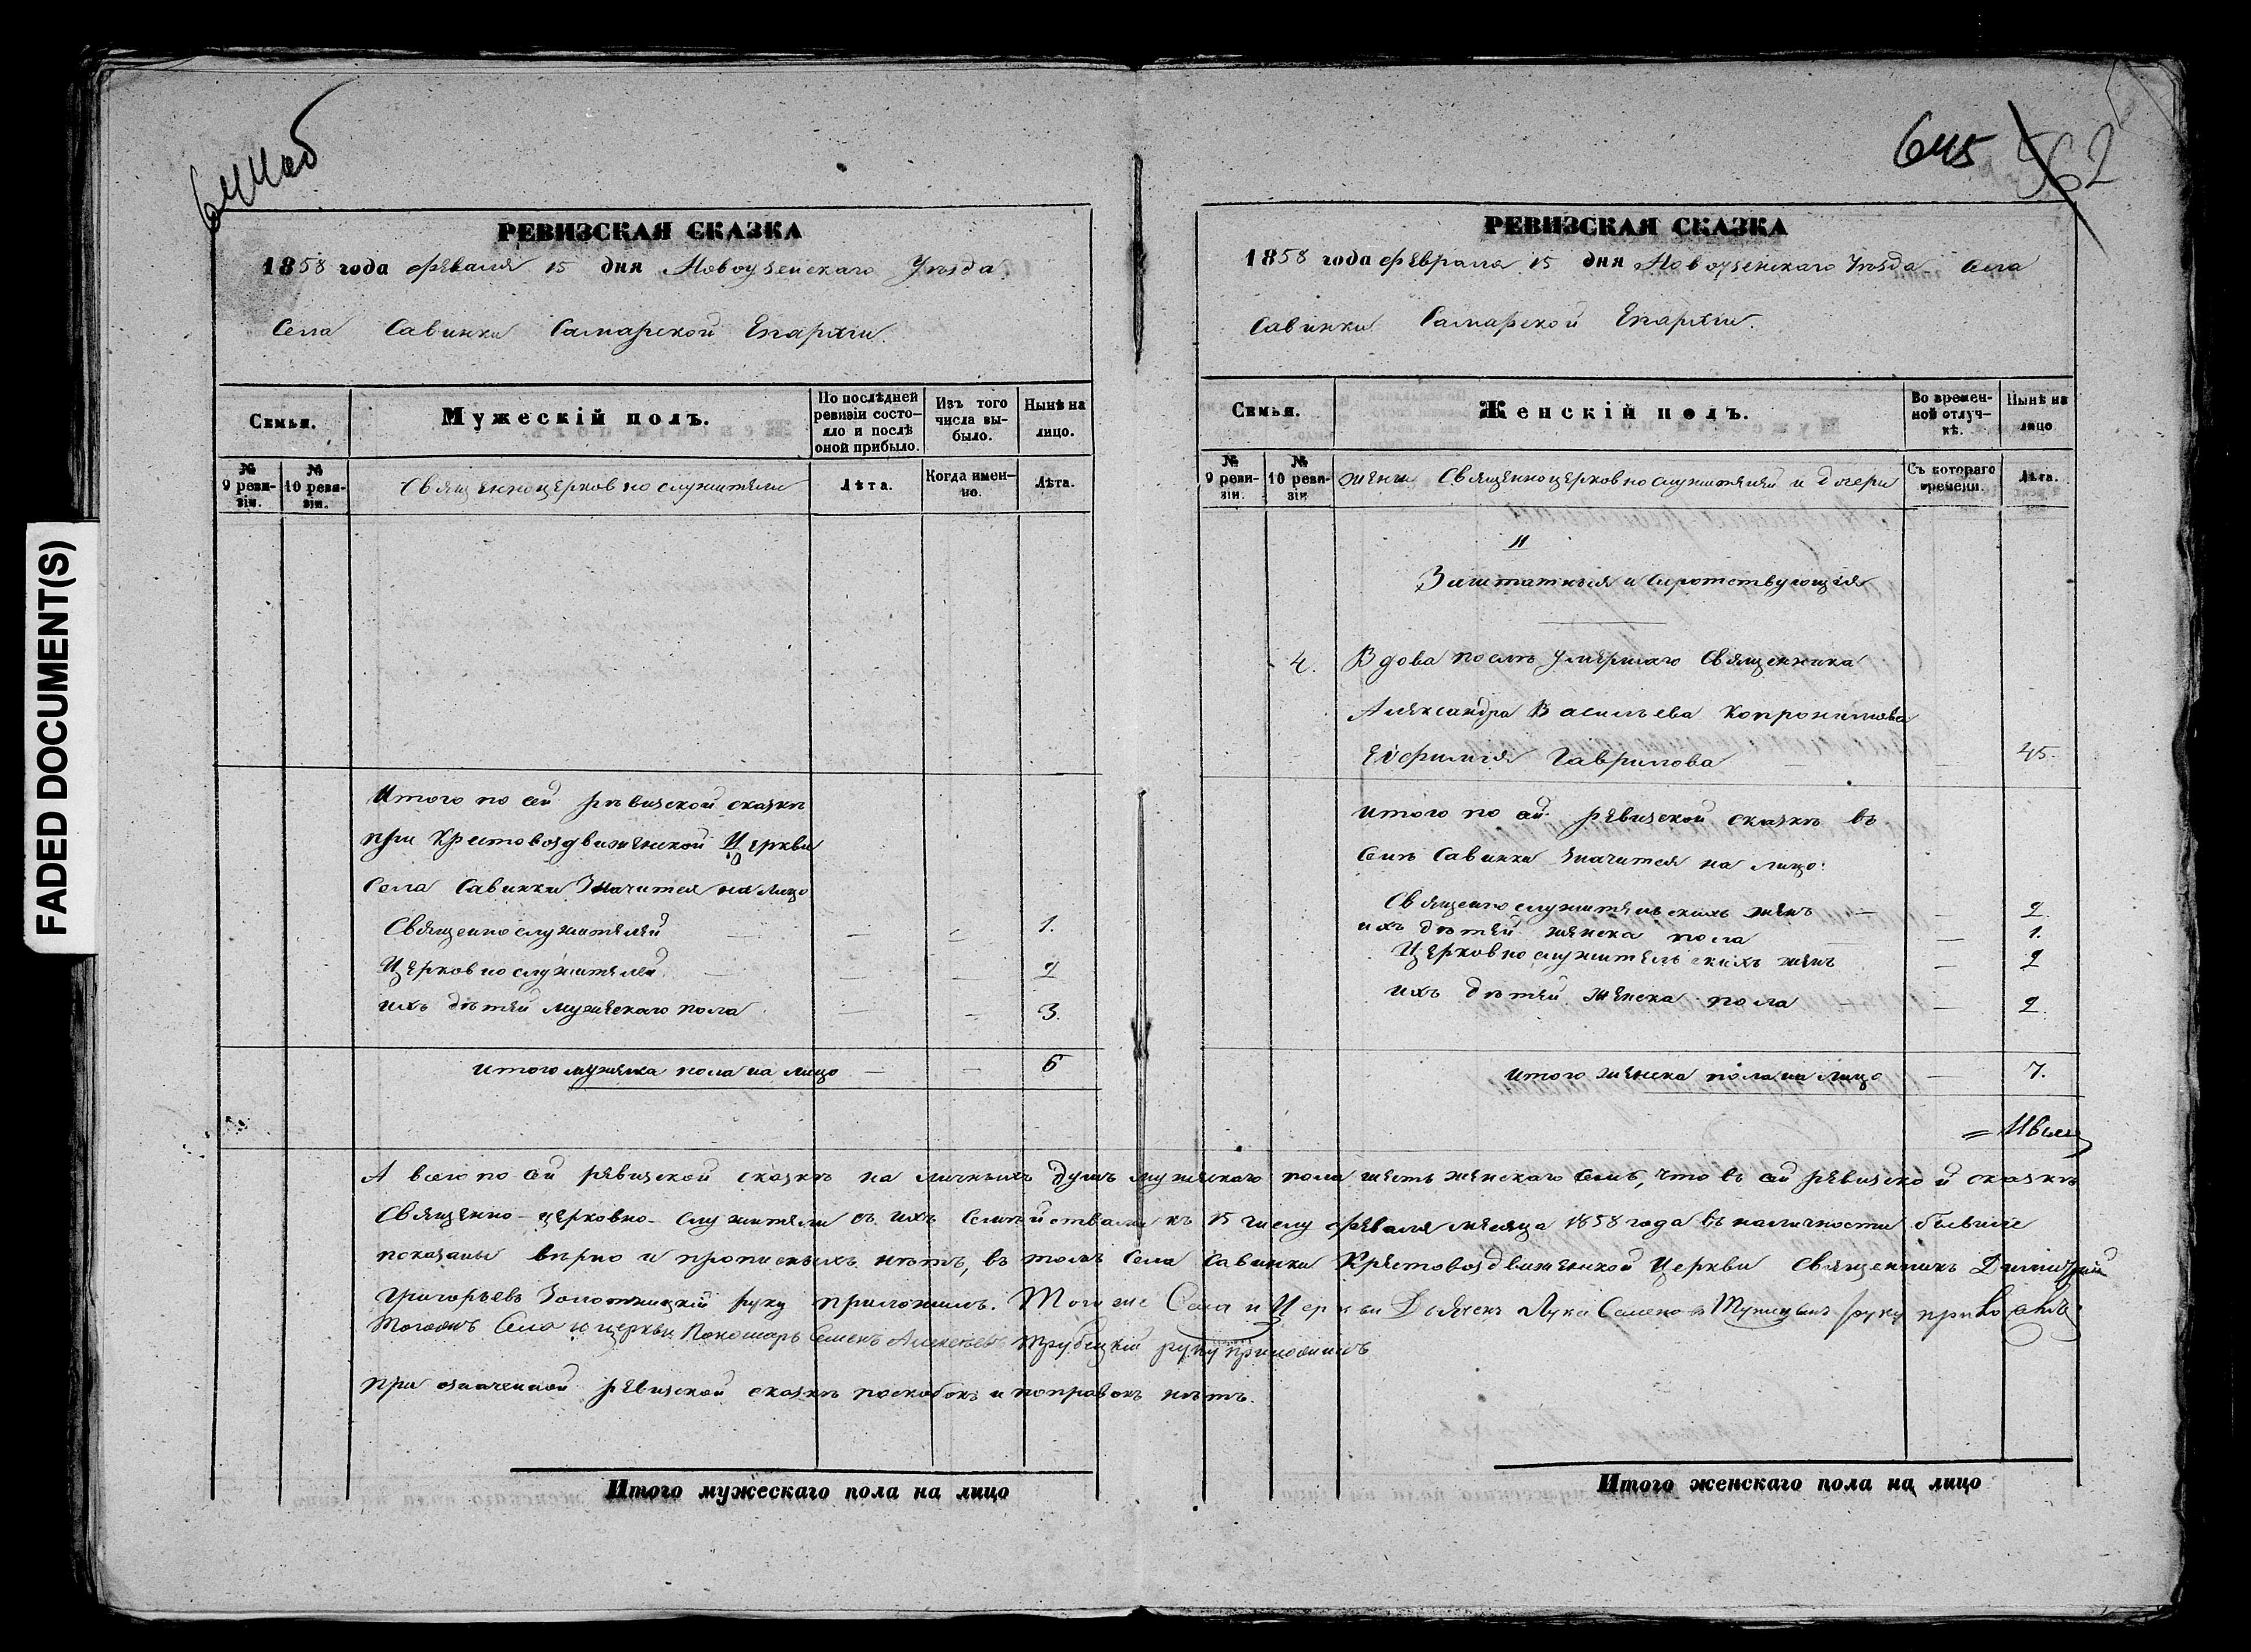 FADED DOCUMENT(S)
644 об
РЕВИЗСКАЯ СКАЗКА
1858 года Февраля 15 дня Новоузенскаго Уѣзда
Села Савинки Самарской Епархіи.
Семьи.
Мужескій полъ.
По послѣдней ревизіи состояло и послѣ оной прибыло.
Изъ того числа выбыло.
Нынѣ на лицо.
№ 9 ревизіи.
№ 10 ревизіи.
Священноцерковнослужители
Лѣта.
Когда именно.
Лѣта.
Итого по сей ревизской сказкѣ
при Крестовоздвиженской Церкви
Села Савинки значится на лицо
Священнослужителей — — 1.
Церковнослужителей — — 2
ихъ дѣтей мужескаго пола — — 3.
Итого мужеска пола на лицо — — 6
645 562
РЕВИЗСКАЯ СКАЗКА
1858 года Февраля 15 дня Новоузенскаго Уѣзда Села
Савинки Самарской Епархіи.
Семьи.
Женскій полъ.
Во временной отлучкѣ.
Нынѣ на лицо
№ 9 ревизіи.
№ 10 ревизіи.
жены Священноцерковнослужителей и дочери
Съ котораго времени.
Лѣта.
II
Заштатныя и Сиротствующія
4. Вдова послѣ умершаго Священника
Александра Васильева
Евфимія Гаврилова 45.
Итого по сей ревизской сказкѣ въ
Селѣ Савинки значится на лицо:
Священнослужительскихъ женъ — 2.
ихъ дѣтей женска пола — 1.
Церковнослужительскихъ женъ — 2
ихъ дѣтей женска пола — 2.
Итого женска пола на лицо — 7.
А всего по сей ревизской сказкѣ на личныхъ душъ мужескаго пола шесть женскаго семь, что въ сей ревизской сказкѣ
Священно-церковно-служители съ ихъ Семействами къ 15 числу Февраля месяца 1858 года въ наличности бывшіе
показаны вѣрно и прописныхъ нѣтъ, въ томъ Села Савинки Крестовоздвиженской Церкви Священникъ Димитрій
Григорьевъ Золотницкій руку приложилъ. Тогоже Села и Церкви Дьячекъ Лука Семеновъ руку приложилъ
Тогожъ Села и церкви Пономарь Семенъ Алексеевъ Трубецкій руку приложилъ
При означенной ревизской сказкѣ поскобокъ и поправокъ нѣтъ.
Итого мужескаго пола на лицо
Итого женскаго пола на лицо